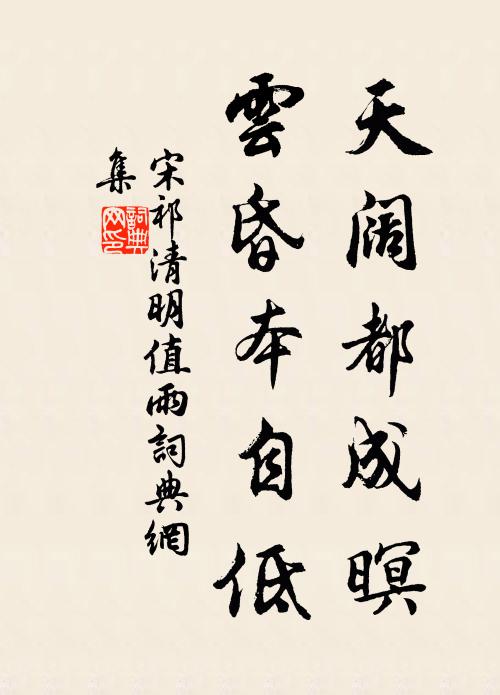 天阔都成暝
雲昏本自低
宋祁清明值雨詞典網
集
詞典网印